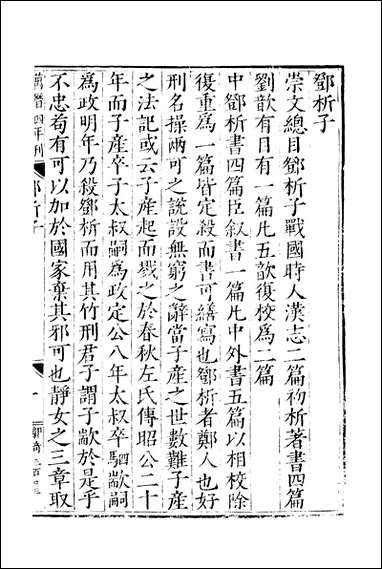 鄧析子
崇文總目鄧析子戰國時人漢志二篇初析著書四篇
劉歆有目有一篇凡五歆復校為二篇
中鄧析書四篇臣叙書一篇凡中外書五篇以相校除
復重為一篇皆定殺而書可繕寫也鄧析者鄭人也好
刑名操兩可之說設無窮之辭當子產之世數難子產
之法記或云子產起而戮之於春秋左氏傳昭公二十
年而子產卒子太叔嗣為政定公八年太叔卒駟歂嗣
為政明年乃殺鄧析而用其竹刑君子謂子歂於是乎
不忠苟有可以加於國家棄其邪可也靜女之三章取
萬曆四年刊 鄧析子 一